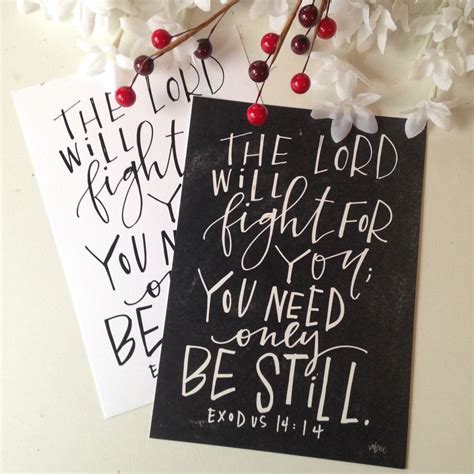 THE LORD
WILL
fight
YOU
YOU NEED
only
BE
E
THE LORD
WILL
fight FOR
YOU;
YOU NEED
only
BE STILL.
EXODUS 14:14